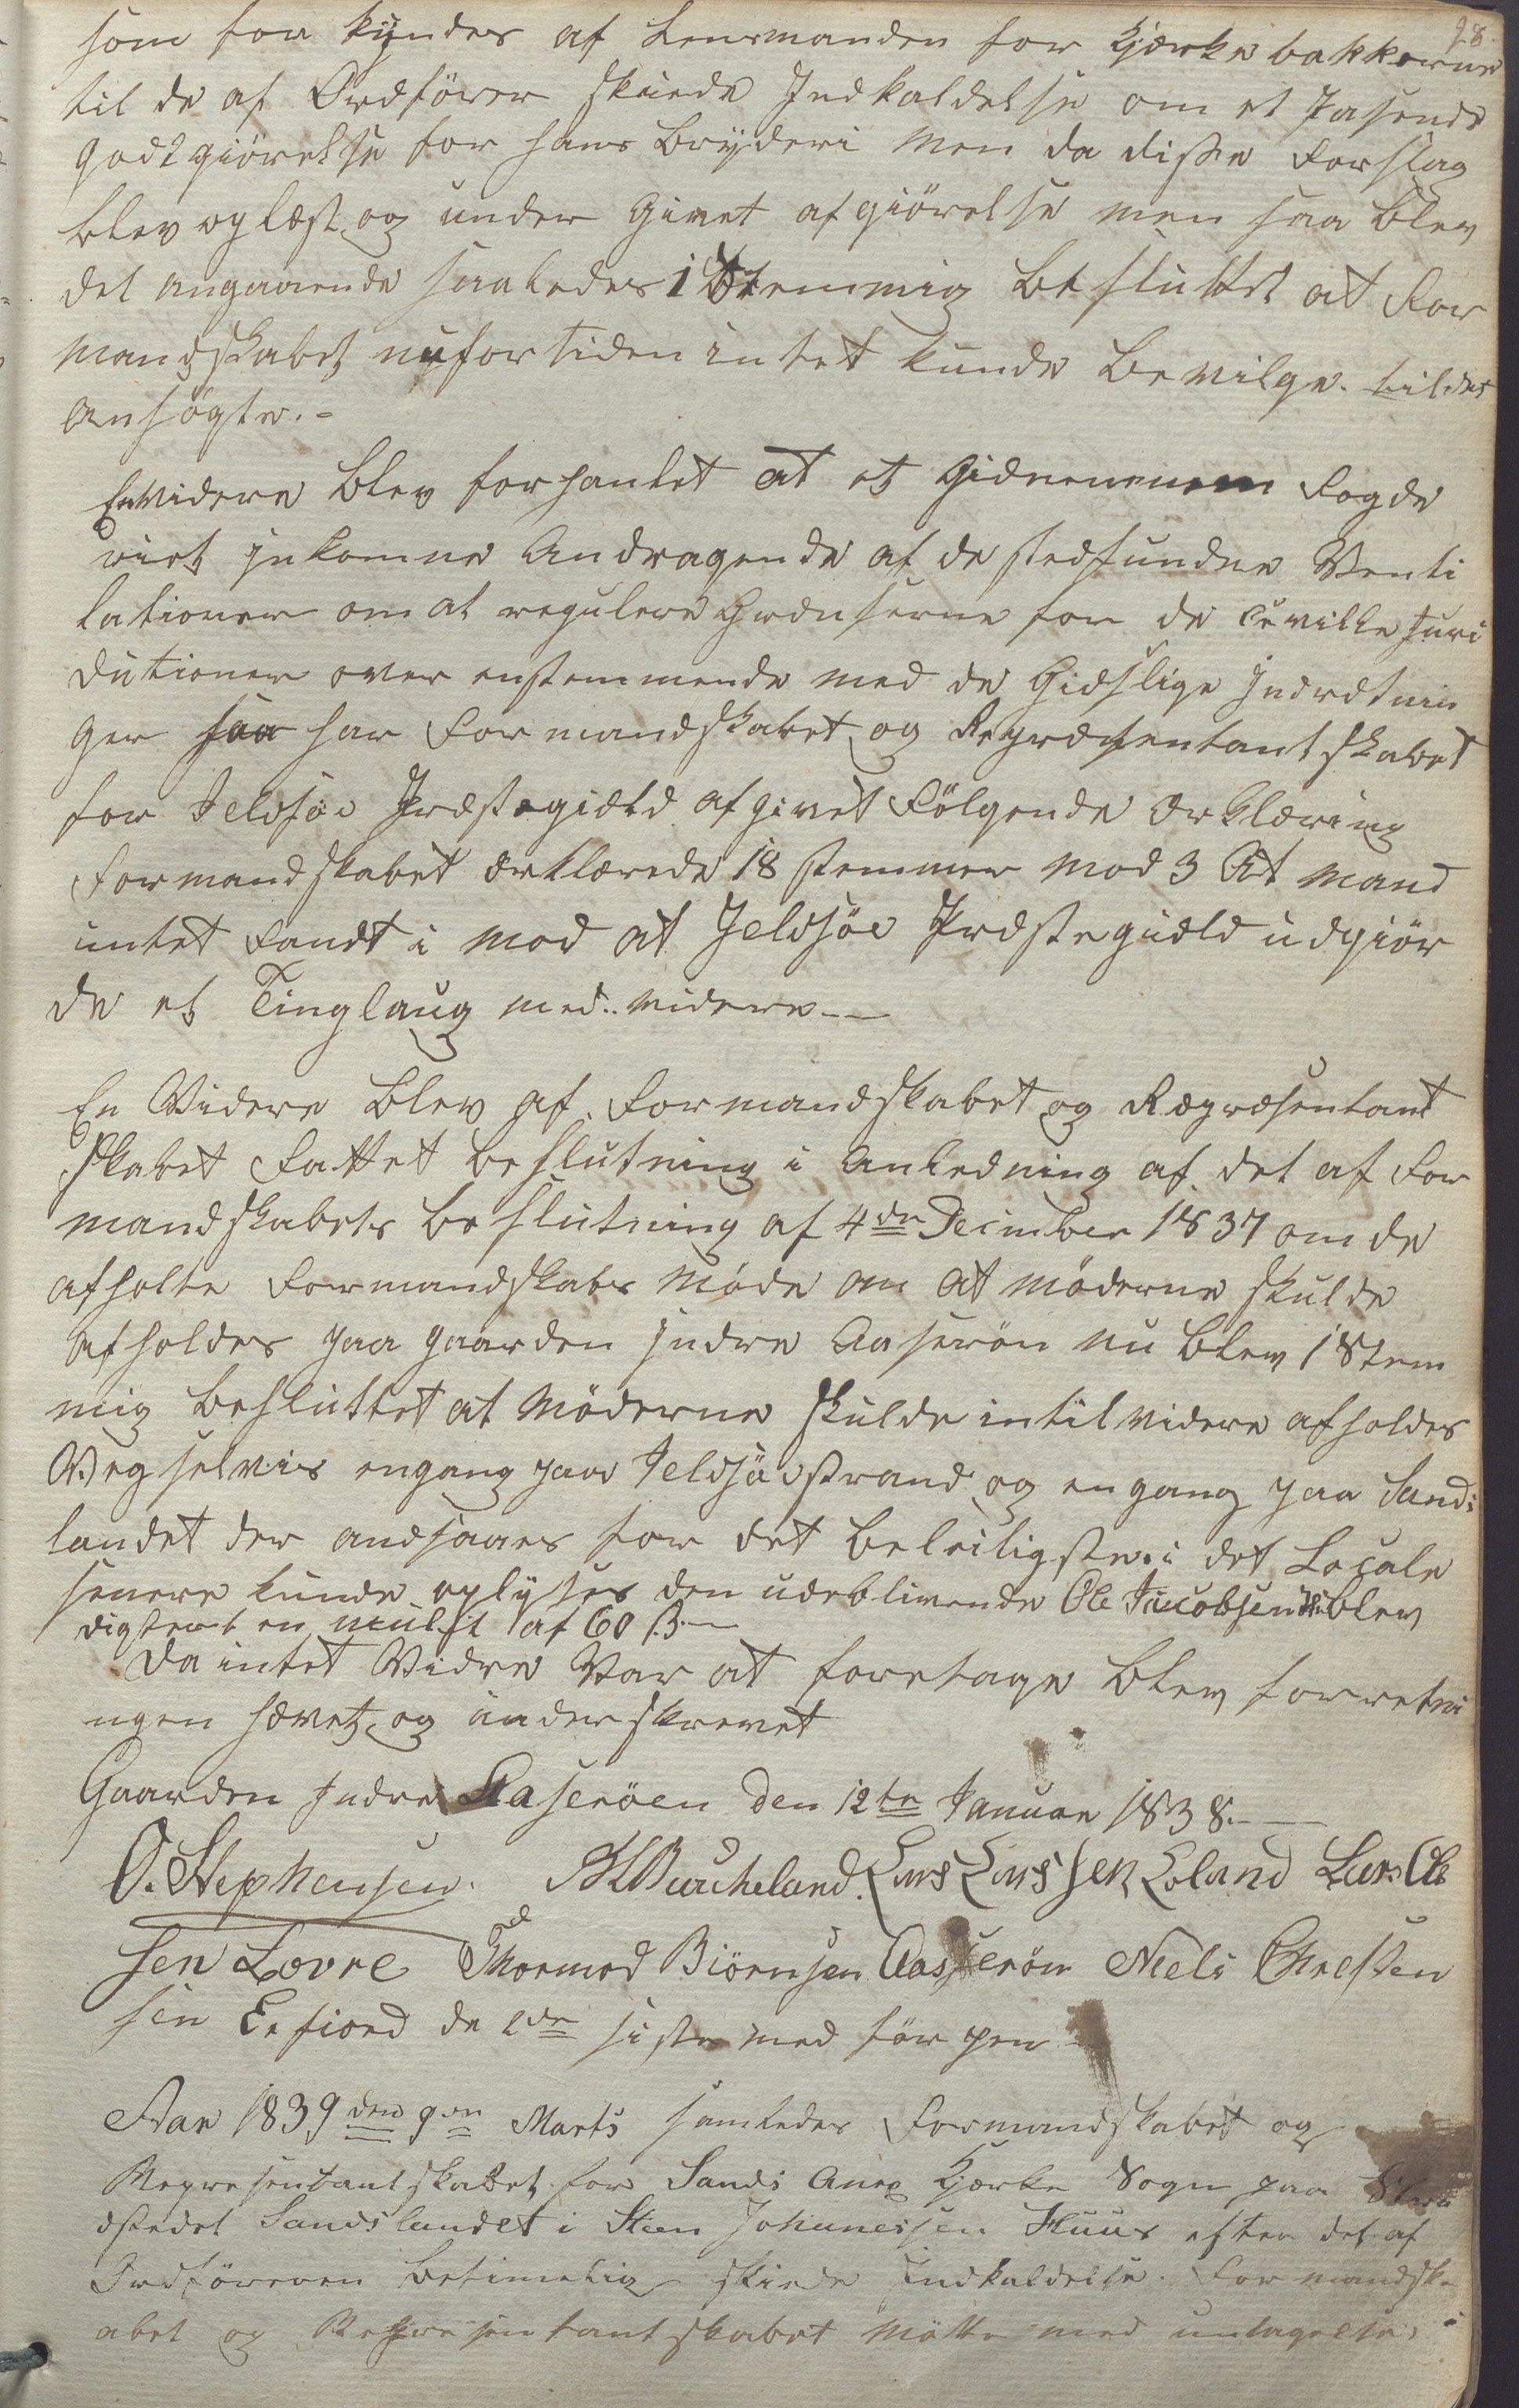 28.
som for kyndes af Lensmanden for kjærkebakkerne
til de af Ordförer skiede Indkaldelse om et Pasende
Godtgiörelse for hans bryderi Men da disse Forslag
blev oplæst og under Givet afgiörelse men saa blev
det angaaende saaledes 1 Stemmig besluttet at For
mandskabet nufortiden intet kunde bevilge til det
Ansögte.-
En videre blev forhanlet at et Gidnenem Fogde
riet jnkomne Andragende af de stedfundne Venti
lationer om at regulere Grændserne for de Civille Juri
dictioner over enstemmende med de Gieslige Jndretnin
ger saa har Formandskabet og Repræsentantskabet
for Jelsöe Præstegield afgivet Fölgende Erklæring
Formandskabet erklærede 18 stemmer mod 3 At mand
intet fandt i mod at Jelsöe Præstegield udgiör
de et Tinglaug med.. videre--
En Videre blev af Formandskabet og Repræsentant
skabet Fattet beslutning i Anledning af det af For
mandskabets beslutning af 4de December 1837 om de
afholte Formandskabs Möde om at Möderne skulde
afholdes paa Gaarden Jndre Aaseröen nu blev 1 Stem
mig besluttet at Möderne skulde intil videre afholdes
Vegselvis engang paa Jelsöestrand og engang paa Sands
landet der andsaaes for det beleiligste i det Locale
senere kunde oplyses den udeblivende Ole Jacobsen blev
digteret en mulct af 60 s.
Da intet Vidre Var at foretage blev forretni
ngen hævet og underskrevet
Gaarden Jndre Aaseröen den 12te Januar 1838.--
O. Stephensen. Lars Larssen Eoland Lars Ole
sen Lovre Thormod Biörnsen Aasseröen Neels Chresten
sen Erfiord de 2de siste medför pen
Aar 1839 den 9de Marts samledes Formandskabet og
Represantantskabet for Sands Anex Kjærke Sogn paa
dstedet Sandslandet i Steen Johanessen Huus efter det af
Ordföreren betimelig skiede Indkaldelse. Formandsk-
abet og Represantantskabet Mötte med undtagelse